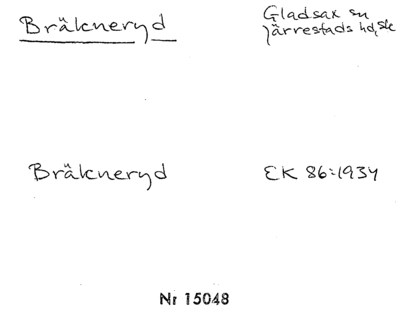 Bräkneryd
Gladsax sn
Järrestads hd, sk
Bräkneryd
EK 86:1934
Nr 15048